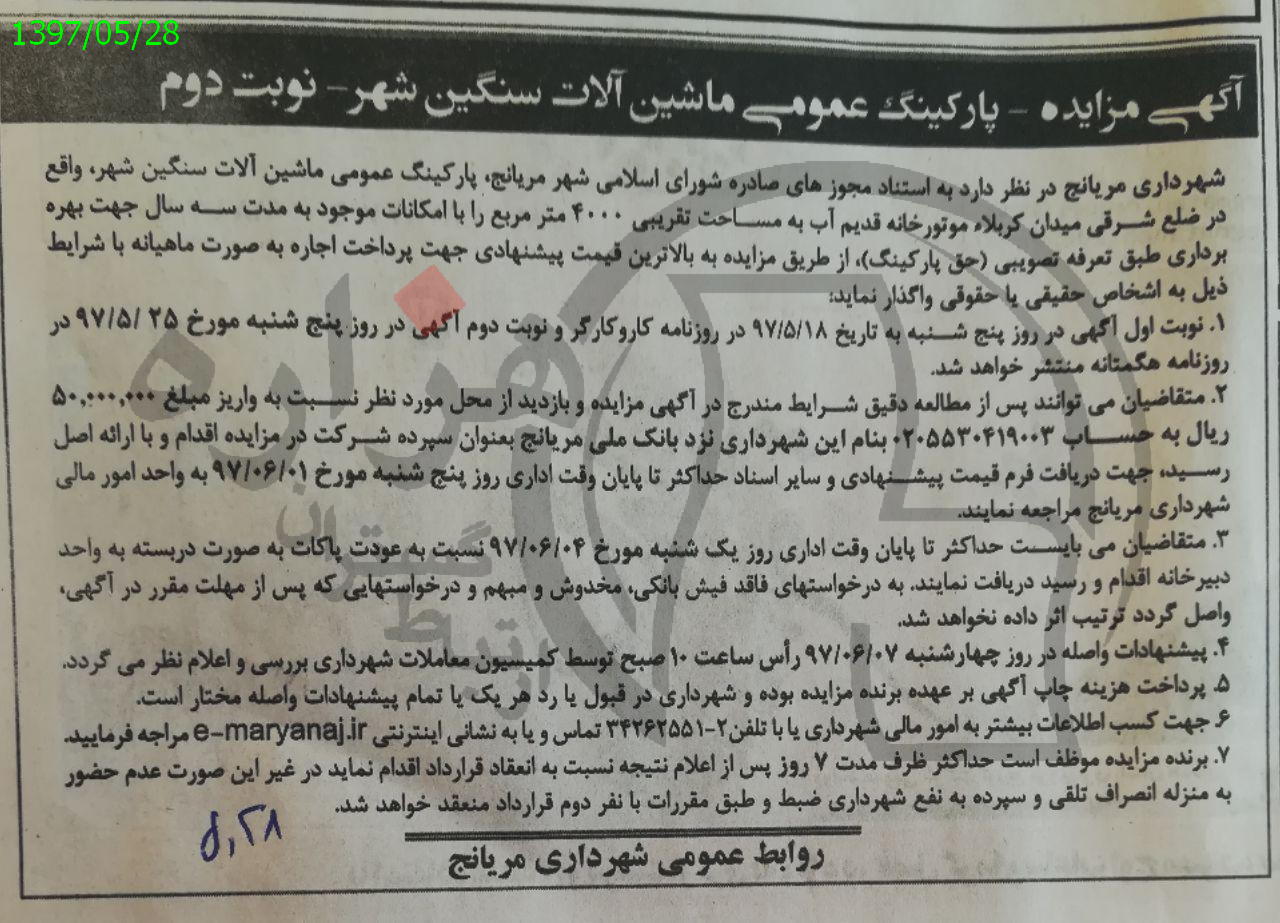 1397/05/28
آگهی مزایده - پارکینگ عمومی ماشین آلات سنگین شهر- نوبت دوم
شهرداری مریانج در نظر دارد به استناد مجوز های صادره شورای اسلامی شهر مریانج، پارکینگ عمومی ماشین آلات سنگین شهر، واقع
در ضلع شرقی میدان کربلاء موتورخانه قدیم آب به مساحت تقریبی ۴۰۰۰ متر مربع را با امکانات موجود به مدت سه سال جهت بهره
برداری طبق تعرفه تصویبی (حق پارکینگ)، از طریق مزایده به بالاترین قیمت پیشنهادی جهت پرداخت اجاره به صورت ماهیانه با شرایط
ذیل به اشخاص حقیقی یا حقوقی واگذار نماید:
۱. نوبت اول آگهی در روز پنج شنبه به تاریخ ۹۷/۵/۱۸ در روزنامه کاروکارگر و نوبت دوم آگهی در روز پنج شنبه مورخ ۲۵ /۹۷/۵ در
روزنامه هگمتانه منتشر خواهد شد.
۲. متقاضیان می توانند پس از مطالعه دقیق شرایط مندرج در آگهی مزایده و بازدید از محل مورد نظر نسبت به واریز مبلغ ۵۰,۰۰۰,۰۰۰
ریال به حساب ۰۲۰۵۵۳۰۴۱۹۰۰۳ بنام این شهرداری نزد بانک ملی مریانج بعنوان سپرده شرکت در مزایده اقدام و با ارائه اصل
رسید، جهت دریافت فرم قیمت پیشنهادی و سایر اسناد حداکثر تا پایان وقت اداری روز پنج شنبه مورخ ۹۷/۰۶/۰۱ به واحد امور مالی
شهرداری مریانج مراجعه نمایند.
۳. متقاضیان می بایست حداکثر تا پایان وقت اداری روز یک شنبه مورخ ۹۷/۰۶/۰۴ نسبت به عودت پاکات به صورت دربسته به واحد
دبیرخانه اقدام و رسید دریافت نمایند. به درخواستهای فاقد فیش بانکی، مخدوش و مبهم و درخواستهایی که پس از مهلت مقرر در آگهی،
واصل گردد ترتیب اثر داده نخواهد شد.
۴. پیشنهادات واصله در روز چهارشنبه ۹۷/۰۶/۰۷ رأس ساعت ۱۰ صبح توسط کمیسیون معاملات شهرداری بررسی و اعلام نظر می گردد.
۵. پرداخت هزینه چاپ آگهی بر عهده برنده مزایده بوده و شهرداری در قبول یا رد هر یک یا تمام پیشنهادات واصله مختار است.
۶. جهت کسب اطلاعات بیشتر به امور مالی شهرداری یا با تلفن۲-۳۴۲۶۲۵۵۱ تماس و یا به نشانی اینترنتی e-maryanaj.ir مراجه فرمایید.
۷. برنده مزایده موظف است حداکثر ظرف مدت ۷ روز پس از اعلام نتیجه نسبت به انعقاد قرارداد اقدام نماید در غیر این صورت عدم حضور
به منزله انصراف تلقی و سپرده به نفع شهرداری ضبط و طبق مقررات با نفر دوم قرارداد منعقد خواهد شد.
۵,۲۸
روابط عمومی شهرداری مریانج
هزاره
گستران
ارتباط